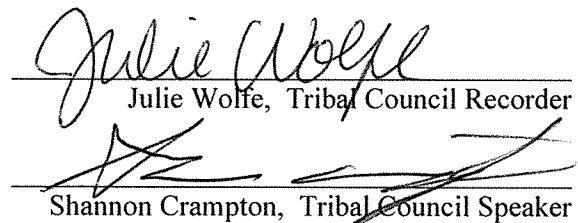 Julie Wolfe
Julie Wolfe, Tribal Council Recorder
Shannon Crampton, Tribal Council Speaker